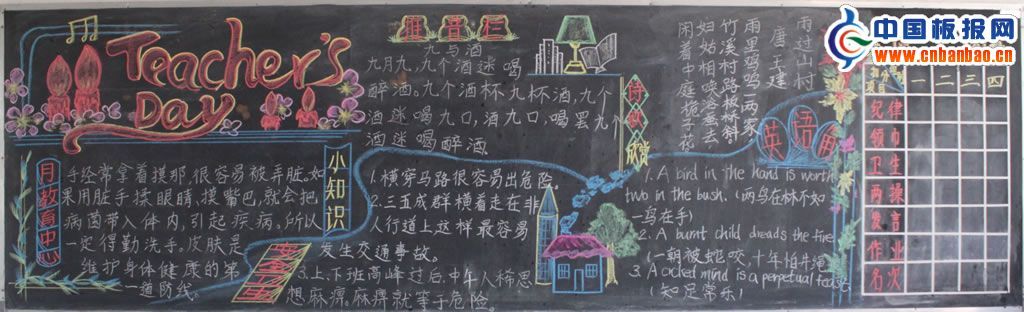 Teacher's
Day
月教育中心
手经常拿着摸那,很容易被弄脏。如
果用脏手揉眼睛,摸嘴巴,就会把
病菌带入体内,引起疾病。所以
一定得勤洗手。皮肤是
维护身体健康的第
一道防线。
小知识
九与酒
九月九,九个酒迷喝
醉酒。九个酒杯九杯酒,九个
酒迷喝九口,酒九口,喝罢九个
酒迷喝醉酒
1.横穿马路很容易出危险。
2.三五成群横着走在非
人行道上这样最容易
发生交通事故。
3.上、下班高峰过后,中午人稀思
想麻痹。麻痹就等于危险。
诗歌欣赏
雨过山村
唐 王建
雨里鸡鸣一两家
竹溪村路板桥斜
妇姑相唤浴蚕去
闲着中庭栀子花
英语角
1. A bird in the hand is worth
two in the bush. (两鸟在林不如
一鸟在手)
2. A burnt child dreads the fire
(一朝被蛇咬,十年怕井绳
3. A mind is a perpetual feast
(知足常乐)
一 二 三 四
纪律
领巾
卫生
两操
发言
作业
名次
中国板报网
www.cnbanbao.cn